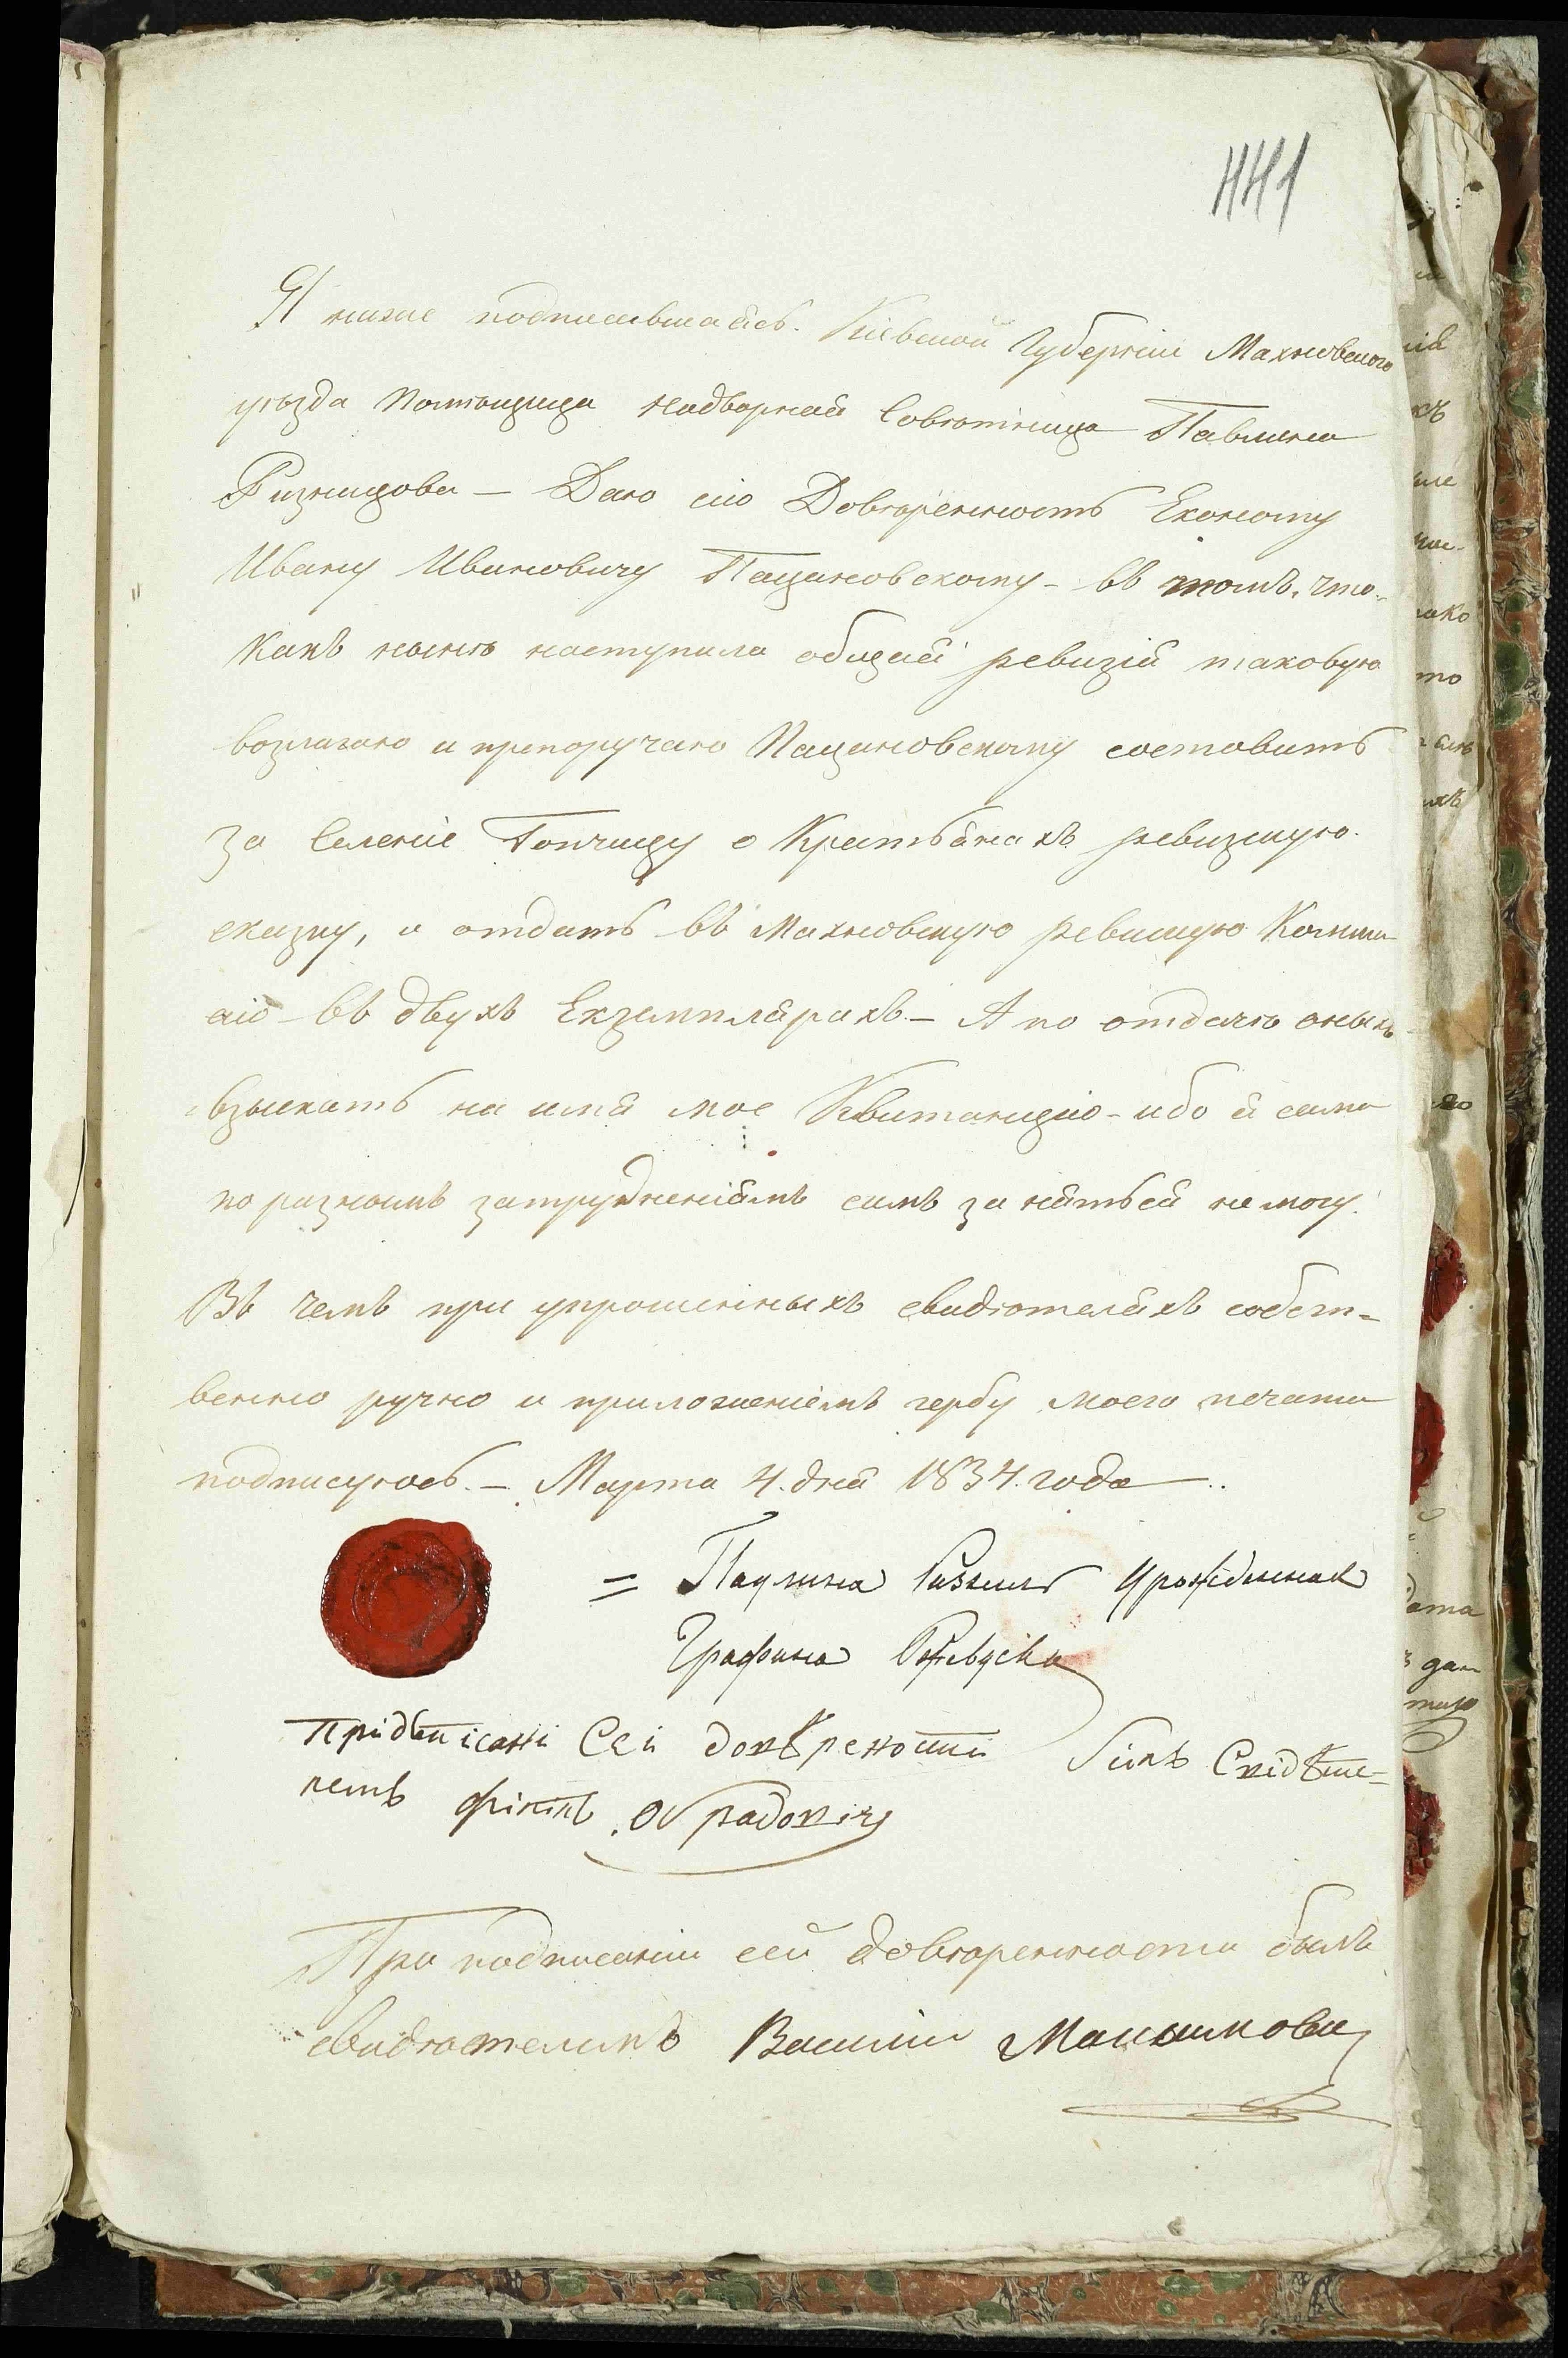 441
Я ниже подписавшаясь. Кіевской Губерніи Махновского
уѣзда Помѣщица надворная Совѣтница Павлина
Ризницова — Даю сію Довѣренность Економу
Ивану Ивановичу Пацановскому – въ томъ, что
какъ нынѣ наступила общая ревизія таковую
возлагаю и препоручаю Пацановскому составить
за Селеніе Гопчицу о Крестьянахъ ревизскую
сказку, и отдать въ Махновскую ревискую Комми
сію – въ двухъ Екземплярахъ. – А по отдачѣ оныхъ
взыскать на имя мое Квитанцію – ибо я сама
по разнымъ затрудненіямъ симъ заняться не могу.
Въ чемъ при упрошенныхъ свидѣтеляхъ собст-
венно ручно и приложеніемъ гербу моего печати
подписуюсь. – Марта 4. дня 1834. года
= Паулина Ризничь Урожденная
Графиня Ржевуска
При сей довѣрености билъ Свідѣте-
лемъ
При подписаніи сей довѣренности былъ
свидѣтелемъ Василій